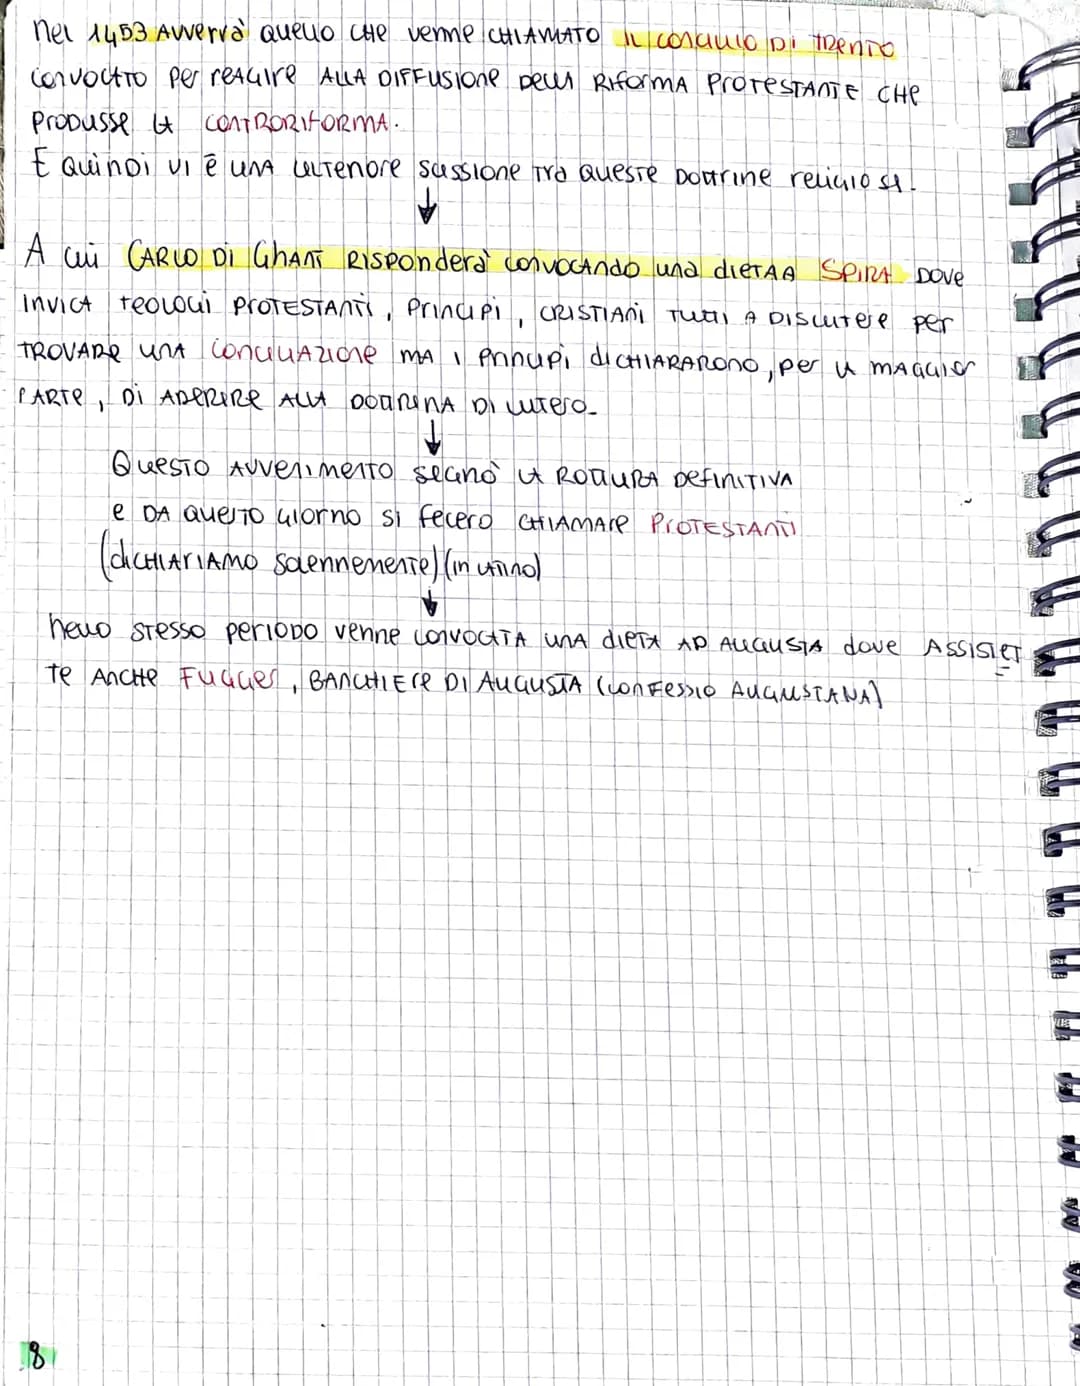 Nel 1453 AVVERRÀ QUELLO CHE VENNE CHIAMATO IL CONCILIO DI TRENTO
CONVOCATO PER REAGIRE ALLA DIFFUSIONE DELLA RIFORMA PROTESTANTE CHE
PRODUSSE LA CONTRORIFORMA.
E QUINDI VI È UNA ULTERIORE SCISSIONE TRA QUESTE DOTTRINE RELIGIOSE.
↓
A CUI CARLO DI GHANT RISPONDERÀ CONVOCANDO UNA DIETA A SPIRA DOVE
INVITA TEOLOGI PROTESTANTI, PRINCIPI, CRISTIANI TUTTI A DISCUTERE PER
TROVARE UNA CONCILIAZIONE MA I PRINCIPI DICHIARARONO, PER LA MAGGIOR
PARTE, DI ADERIRE ALLA DOTTRINA DI LUTERO.
↓
QUESTO AVVENIMENTO SEGNÒ LA ROTTURA DEFINITIVA
E DA QUESTO GIORNO SI FECERO CHIAMARE PROTESTANTI
(DICHIARIAMO SOLENNEMENTE) (IN LATINO)
↓
NELLO STESSO PERIODO VENNE CONVOCATA UNA DIETA AD AUGUSTA DOVE ASSISTET
TE ANCHE FUGGER, BANCHIERE DI AUGUSTA (CONFESSIO AUGUSTANA)
8